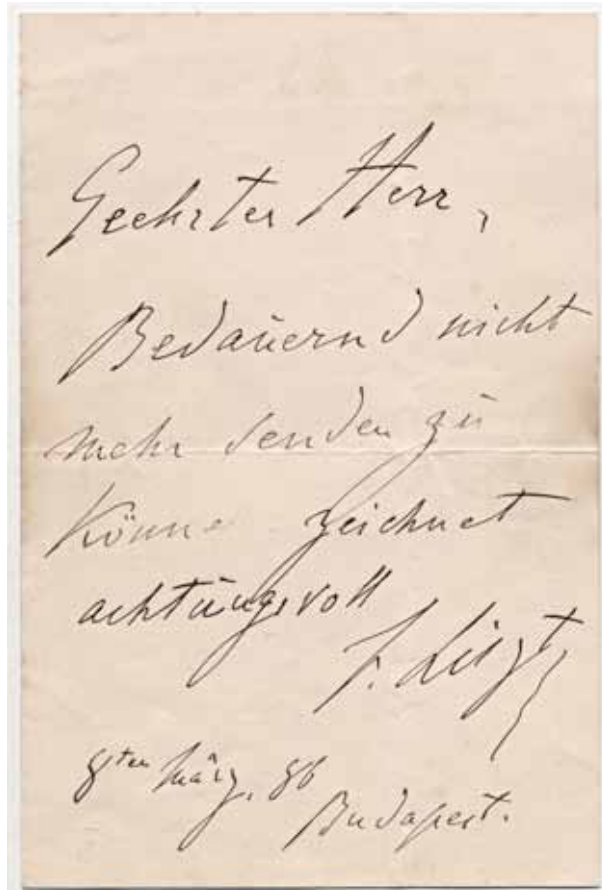 Geehrter Herr,
Bedauernd nicht
mehr senden zu
könne zeichnet
achtungsvoll
F. Liszt
8ten März, 86
Budapest.